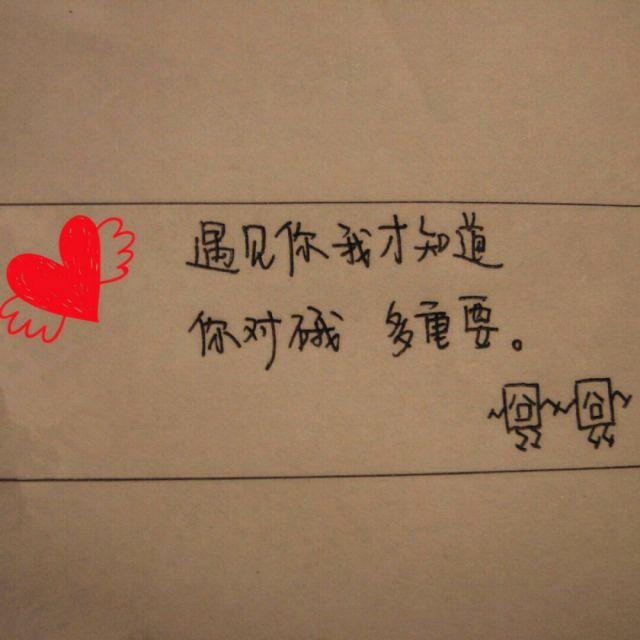 遇见你我才知道
你对硪 多重要。